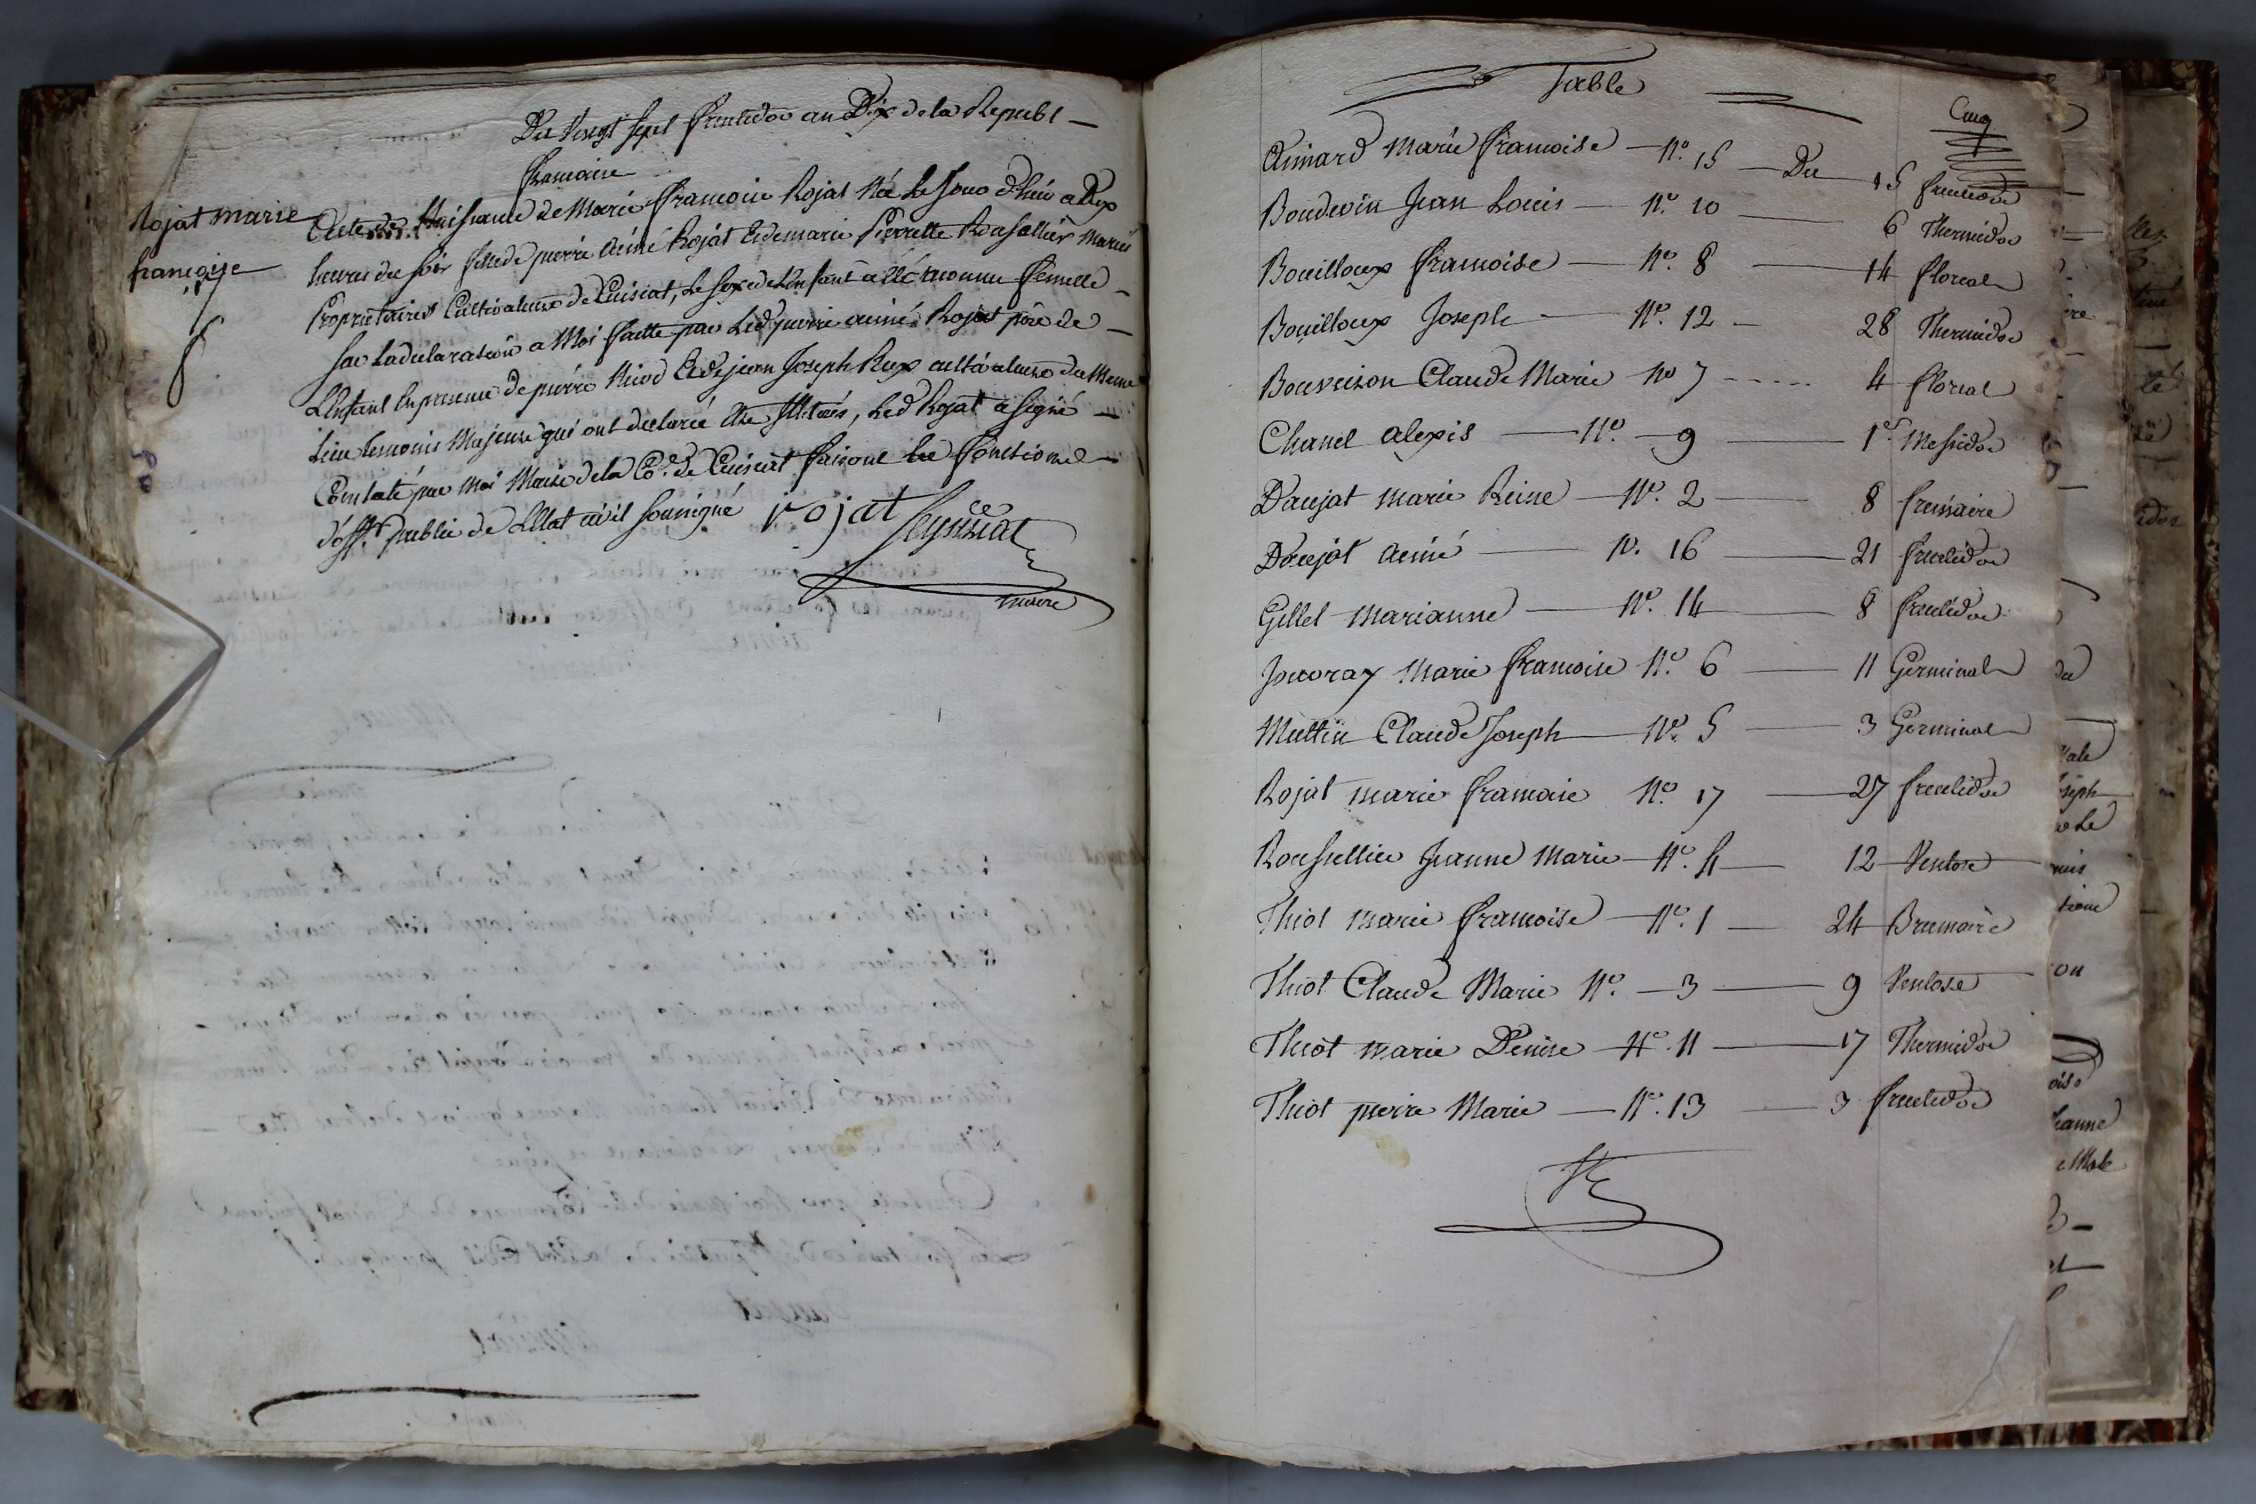 Du Vingt Sept fructidor an Dix de la Republ
francaise
Rojat marie
françoise
17
Acte de Naissance de Marie francoise Rojat Née Le Jour d'hui a Dix
heures du soir fille de pierre aimé Rojat et de marie Pierrette Roussellier Mariés
Proprietaires Cultivateurs de Cuisiat, Le sexe de L'enfant a été reconnu femelle
sur La declaration a Moi faitte par Led pierre aimé Rojat père de
L'Enfant En presence de pierre Nicod et de jean Joseph Rux cultivateurs du Meme
Lieu temoins Majeurs qui ont declaré être Illiterés, Led Rojat a signé
Constaté par Moi Maire de la Co.e de Cuisiat faisant les fonctions
d'off.r public de L'Etat civil soussigné rojat
maire
Table
Cinq
Aimard Marie francoise N.o 15 Du 15 fructidor
Boudevin Jean Louis N.o 10 6 Thermidor
Bouilloux francoise N.o 8 14 floreal
Bouilloux Joseph N.o 12 28 Thermidor
Bouveison Claude Marie No 7 4 floreal
Chanel alexis N.o 9 1.r Messidor
Daujat marie Reine N.o 2 8 frimaire
Daujat aimé N. 16 21 fructidor
Gillet marianne N.o 14 8 fructidor
Jouvray Marie francoise N.o 6 11 Germinal
Multin Claude Joseph N.o 5 3 Germinal
Rojat marie francoise N.o 17 27 fructidor
Roussellier Jeanne Marie N.o 4 12 Ventose
Thiot marie francoise N.o 1 24 Brumaire
Thiot Claude Marie N.o 3 9 Ventose
Thiot marie Denise N.o 11 17 Thermidor
Thiot pierre Marie N.o 13 3 fructidor